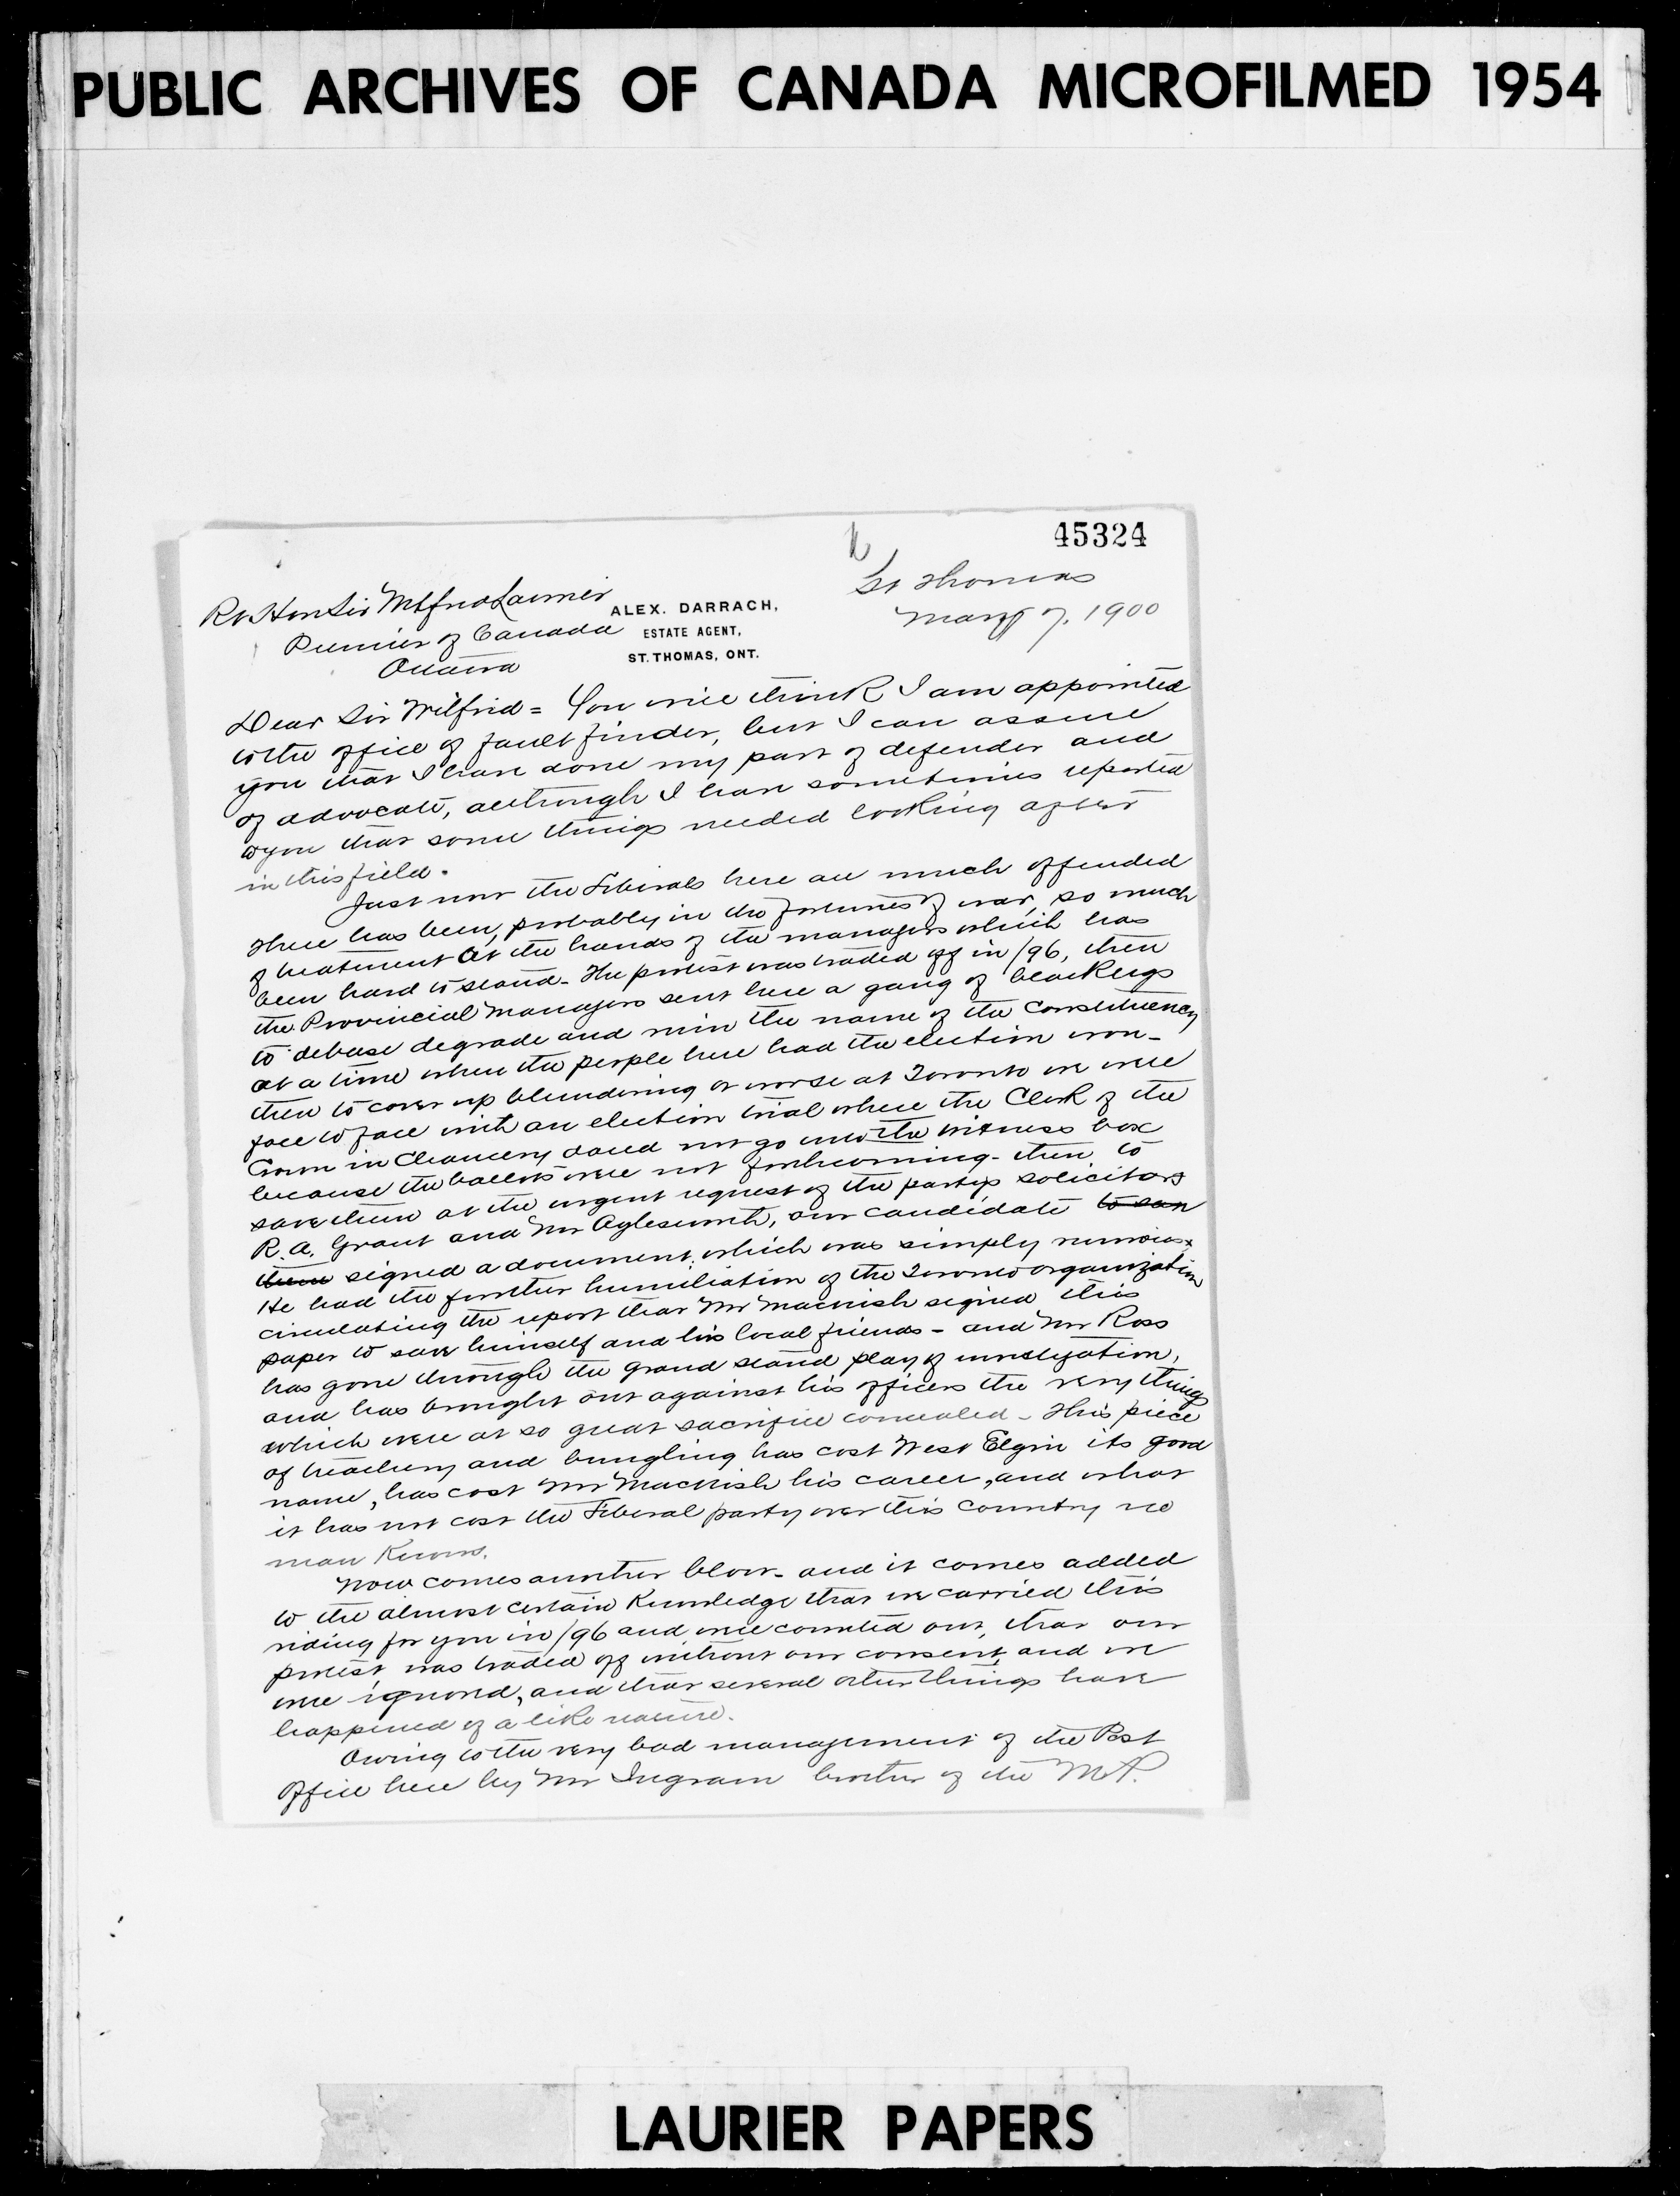 PUBLIC ARCHIVES OF CANADA MICROFILMED 1954
45324
St Thomas
1900
Rt Hon Sir Wilfrid Laurier
Premier of Canada
Ottawa
ALEX. DARRACH,
ESTATE AGENT,
ST. THOMAS, ONT.
Dear Sir Wilfrid = You will think I am appointed
to the office of fault finder, but I can assure
you that I have done my part of defender and
of advocate, although I have sometimes reported
to you that some things needed looking after
in this field.
Just now the Liberals here are much offended
There has been, probably in the fortunes of war, so much
of treatment at the hands of the managers which has
been hard to stand - The protest was traded off in /96, then
the Provincial managers sent here a gang of blacklegs
to debase degrade and ruin the name of the constituency
at a time when the people here had the election won -
then to cover up blundering or worse at Toronto we were
face to face with an election trial where the Clerk of the
Crown in Chancery dared not go into the witness box
because the ballots were not forthcoming - then to
save them at the urgent request of the partys solicitors
R.A. Grant and Mr Aylesworth, our candidate to save
them signed a document which was simply ruinous
He had the further humiliation of the Toronto organization
circulating the report that Mr Macnish signed this
paper to save himself and his local friends - and Mr Ross
has gone through the grand stand play of investigation,
and has brought out against his officers the very things
which were at so great sacrifice concealed - This piece
of treachery and bungling has cost West Elgin its good
name, has cost Mr Macnish his career, and what
it has not cost the Liberal party over this country no
man knows.
Now comes another blow - and it comes added
to the almost certain knowledge that we carried this
riding for you in /96 and were counted out, that our
protest was traded off without our consent, and we
were ignored, and that several other things have
happened of a like nature.
Owing to the very bad management of the Post
Office here by Mr Ingram brother of the M.P.
LAURIER PAPERS